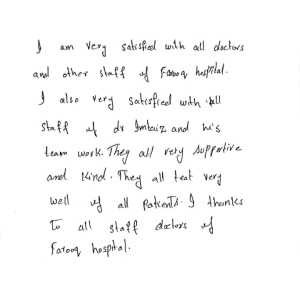 I am very satisfied with all doctors
and other staff of Farooq hospital.
I also very satisfied with all
staff of dr Imtiaz and his
team work. They all very supportive
and kind. They all teat very
well of all Patients. I thanks
to all staff doctors of
Farooq hospital.